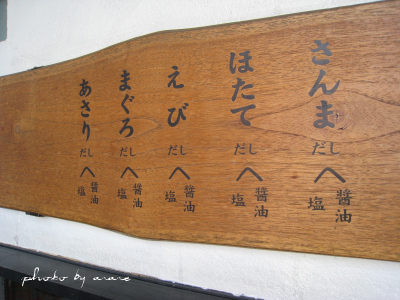 さんまだしへ醤油塩
ほたてだしへ醤油塩
えびだしへ醤油塩
まぐろだしへ醤油塩
あさりだしへ醤油塩
photo by arare